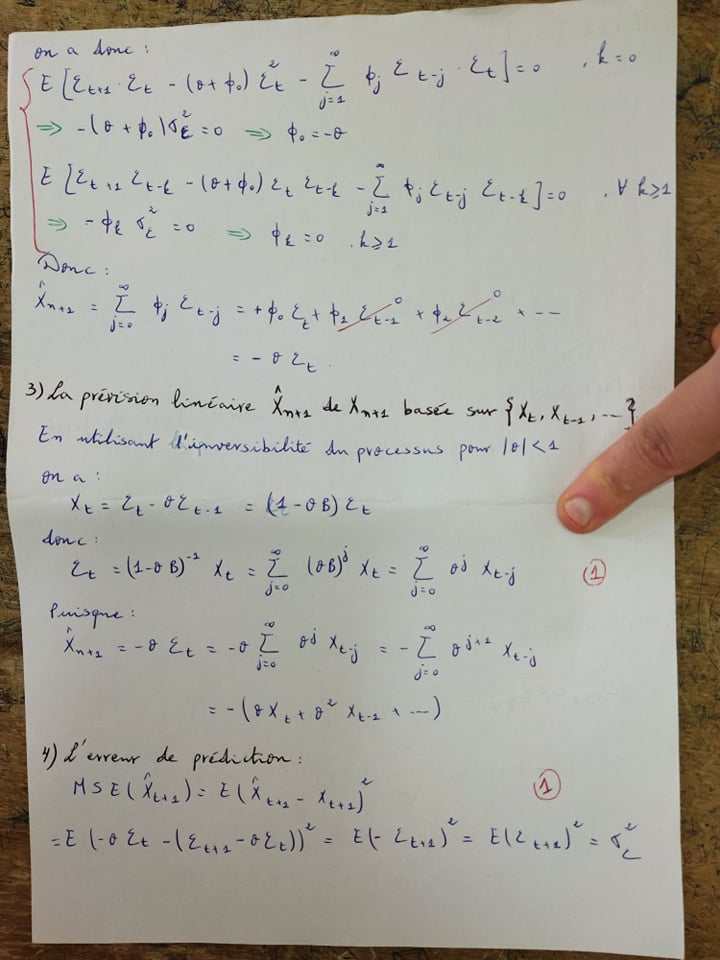 on a donc :
E [ε_{t+1} · ε_t − (θ + ϕ_0) ε_t^2 − ∑_{j=1}^{∞} ϕ_j ε_{t-j} · ε_t] = 0 , k = 0
⇒ −(θ + ϕ_0) σ_ε^2 = 0 ⇒ ϕ_0 = −θ
E [ε_{t+1} ε_{t-k} − (θ + ϕ_0) ε_t ε_{t-k} − ∑_{j=1}^{∞} ϕ_j ε_{t-j} ε_{t-k}] = 0 , ∀ k ≥ 1
⇒ − ϕ_k σ_ε^2 = 0 ⇒ ϕ_k = 0 , k ≥ 1
Donc :
X̂_{n+1} = ∑_{j=0}^{∞} ϕ_j ε_{t-j} = + ϕ_0 ε_t + ϕ_1 ε_{t-1} 0 + ϕ_2 ε_{t-2} 0 + ---
= − θ ε_t .
3) La prévision linéaire X̂_{n+1} de X_{n+1} basée sur {X_t, X_{t-1}, ---}
En utilisant l'inversibilité du processus pour |θ| < 1
on a :
X_t = ε_t − θ ε_{t-1} = (1 − θ B) ε_t
donc :
ε_t = (1 − θ B)^{-1} X_t = ∑_{j=0}^{∞} (θ B)^j X_t = ∑_{j=0}^{∞} θ^j X_{t-j} (1)
Puisque :
X̂_{n+1} = − θ ε_t = − θ ∑_{j=0}^{∞} θ^j X_{t-j} = − ∑_{j=0}^{∞} θ^{j+1} X_{t-j}
= − (θ X_t + θ^2 X_{t-1} + ---)
4) L'erreur de prédiction :
MSE(X̂_{t+1}) = E(X̂_{t+1} − X_{t+1})^2 (1)
= E (−θ ε_t − (ε_{t+1} − θ ε_t))^2 = E(− ε_{t+1})^2 = E(ε_{t+1})^2 = σ_ε^2